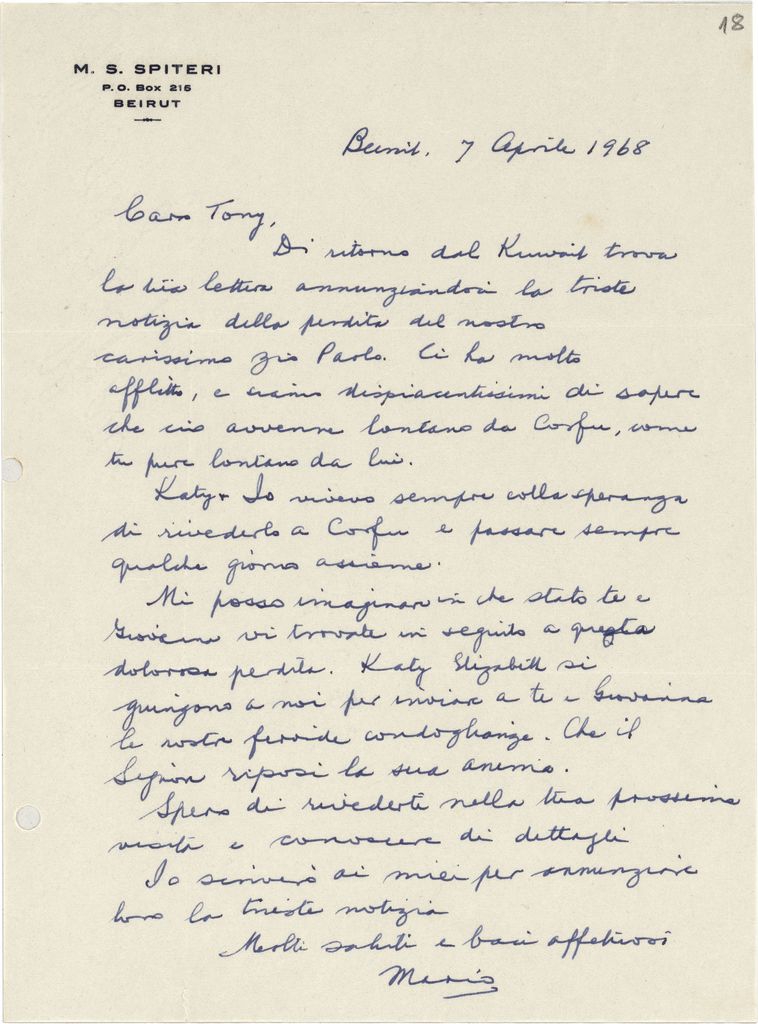 18
M. S. SPITERI
P.O. Box 215
BEIRUT
Beirut. 7 Aprile 1968
Caro Tony,
Di ritorno dal Kuwait trova
la tua lettera annunziandoci la triste
notizia della perdita del nostro
carissimo zio Paolo. Ci ha molto
afflitto, e siamo dispiacentissimi di sapere
che cio avvenne lontano da Corfu, come
tu pure lontano da lui.
Katy + Io vivevo sempre colla speranza
di rivederlo a Corfu e passare sempre
qualche giorno assieme.
Mi posso imaginare in che stato te e
Giovanna vi trovate in seguito a questa
dolorosa perdita. Katy Elizabeth si
guingono a noi per inviare a te e Giovanna
le nostre fervide condoglianze. Che il
Signor riposi la sua anima.
Spero di rivederti nella tua prossima
visita e conoscere di dettagli
Io scriverò ai miei per annunziare
loro la trieste notizia
Molti saluti e baci affettuosi
Mario